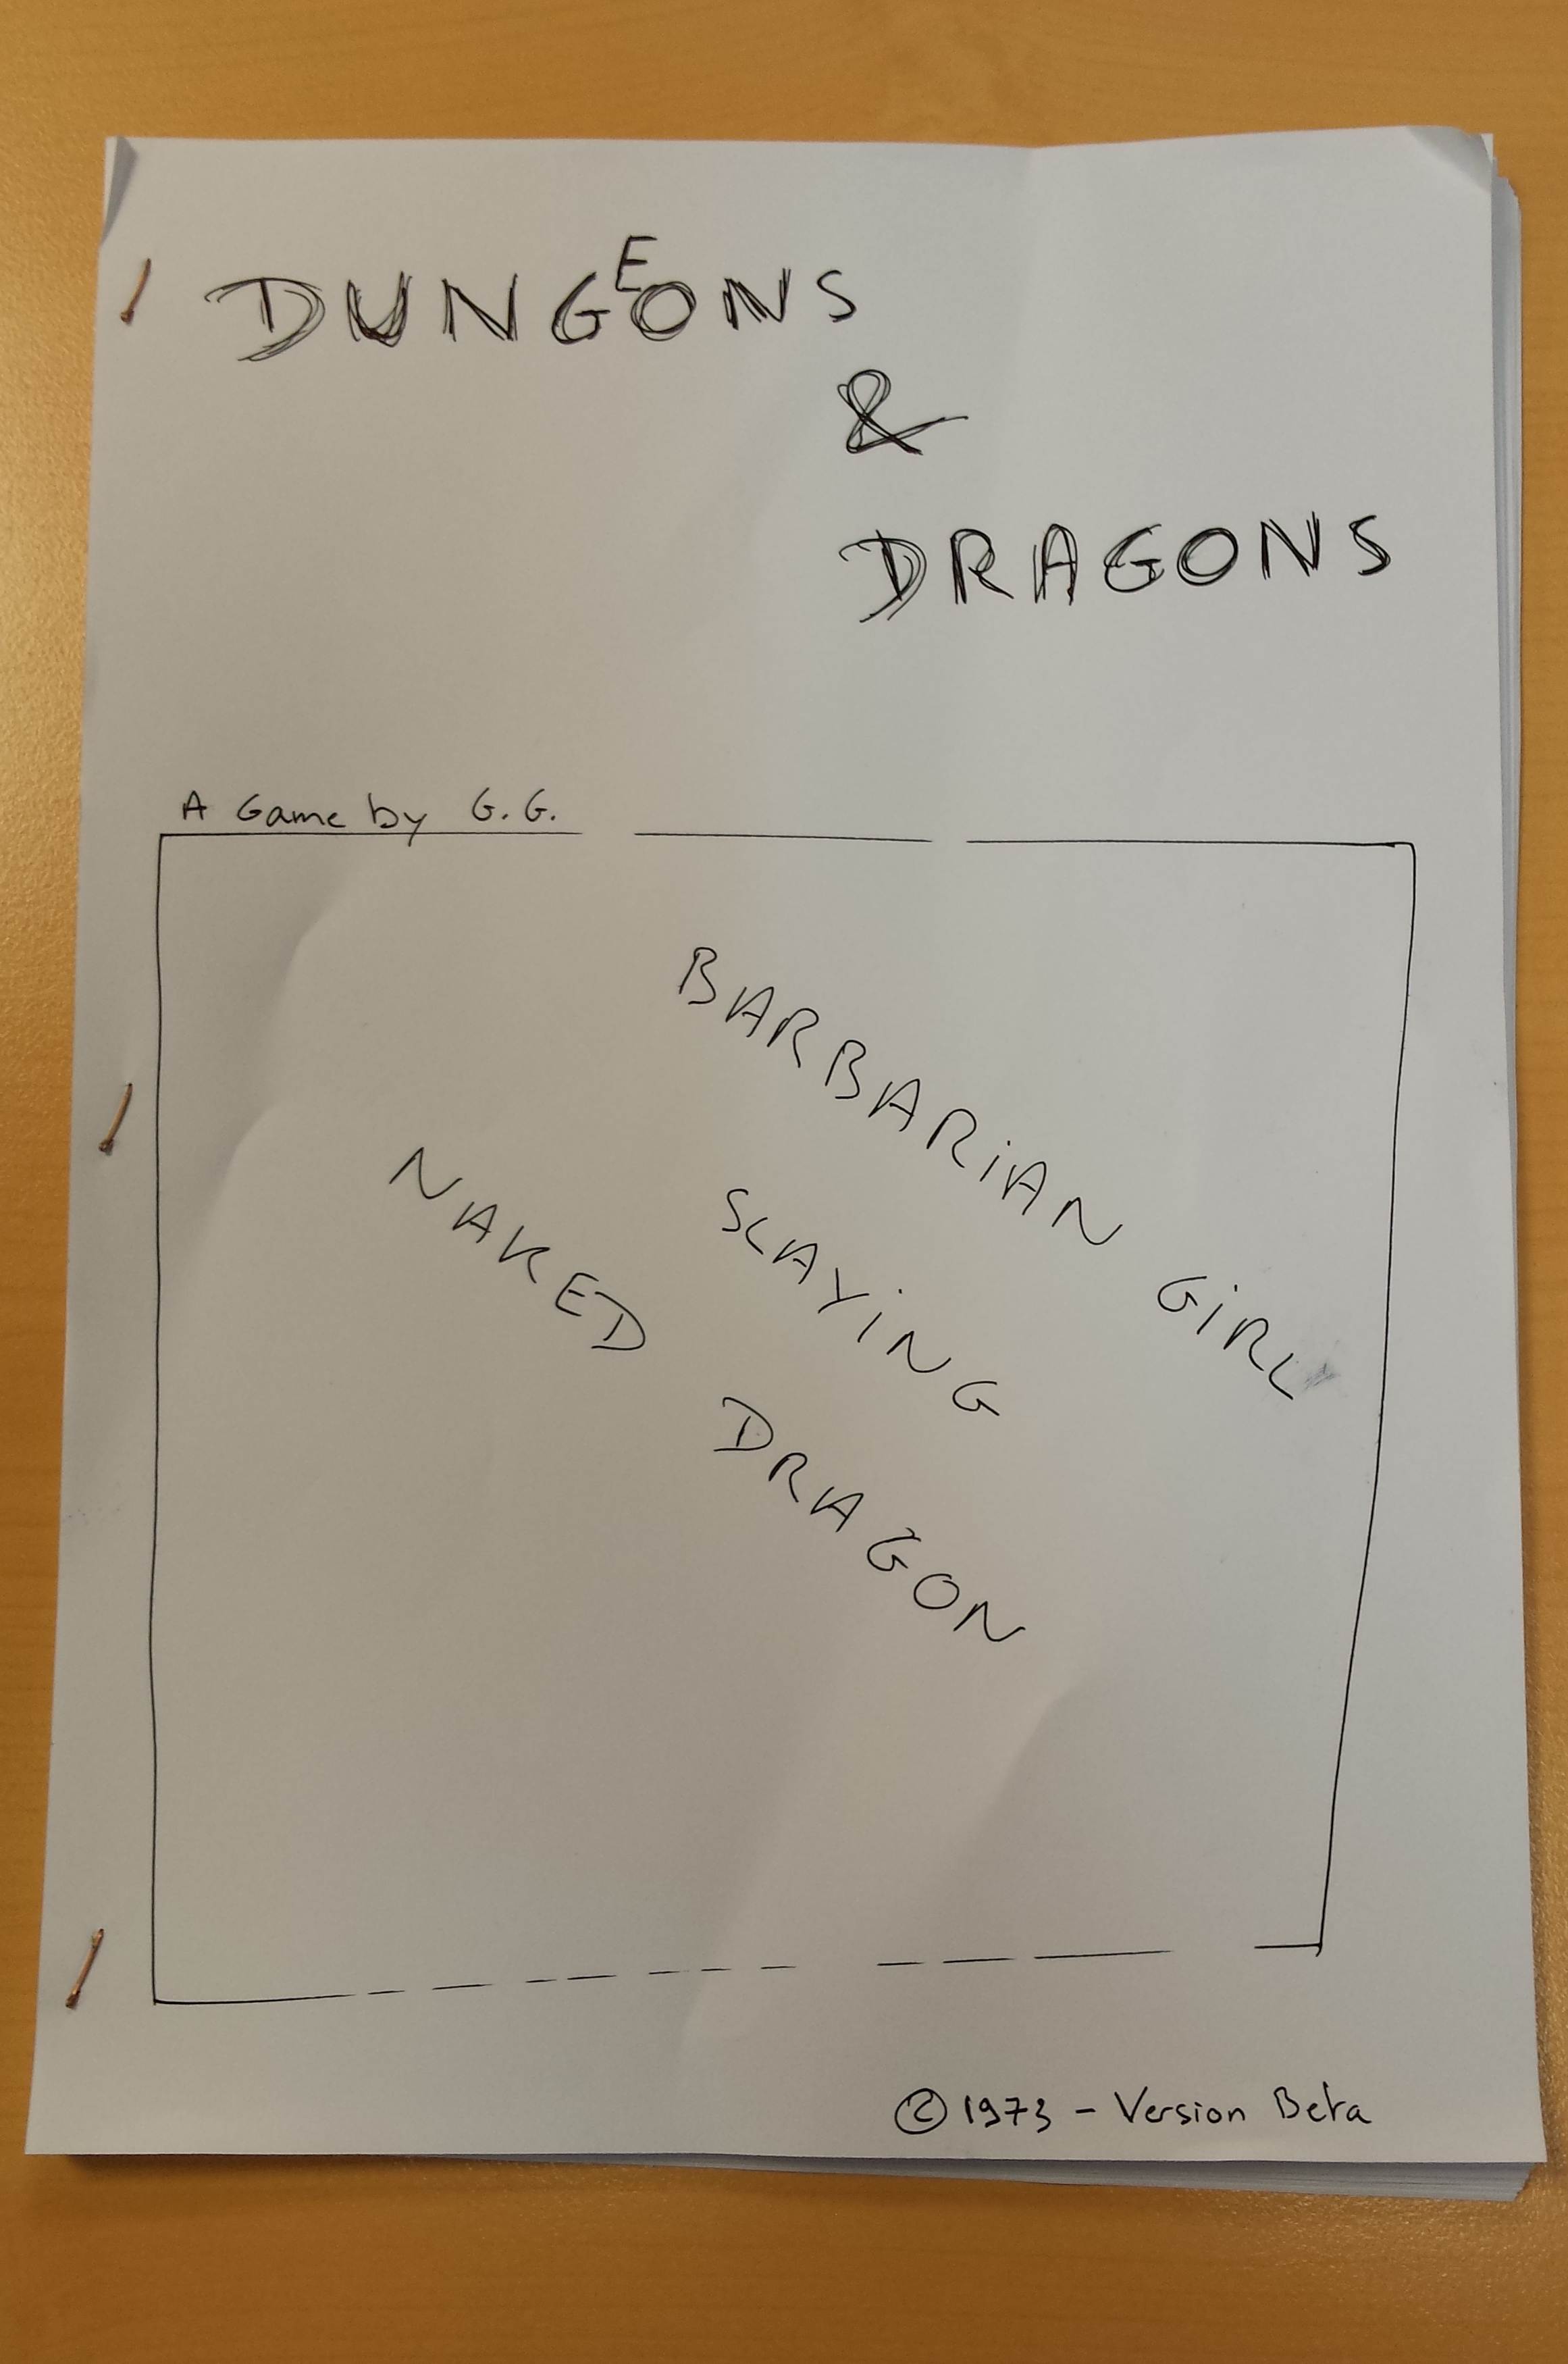 DUNGEONS
&
DRAGONS
A Game by G.G.
BARBARiAN GiRL
NAKED SLAYiNG
DRAGON
© 1973 - Version Beta